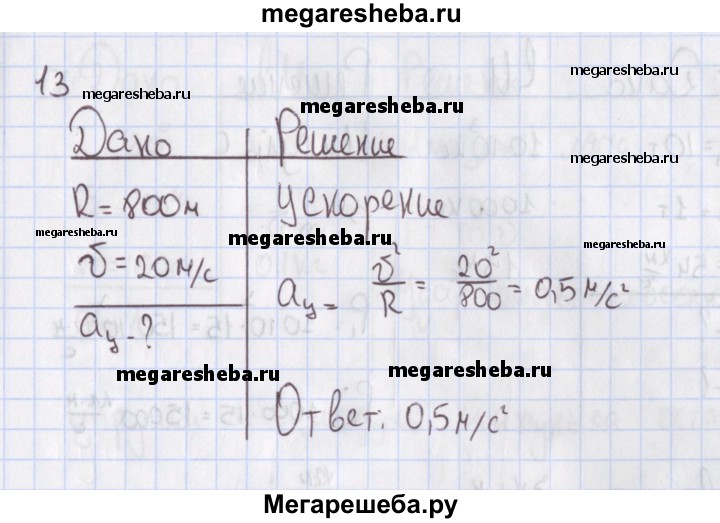 megaresheba.ru
13
megaresheba.ru
megaresheba.ru
megaresheba.ru
Дано
Решение
megaresheba.ru
R = 800м
Ускорение
megaresheba.ru
megaresheba.ru
megaresheba.ru
υ = 20 м/с
aц = υ²/R = 20²/800 = 0,5 м/с²
aц - ?
megaresheba.ru
megaresheba.ru
Ответ: 0,5 м/с²
Мегарешеба.ру